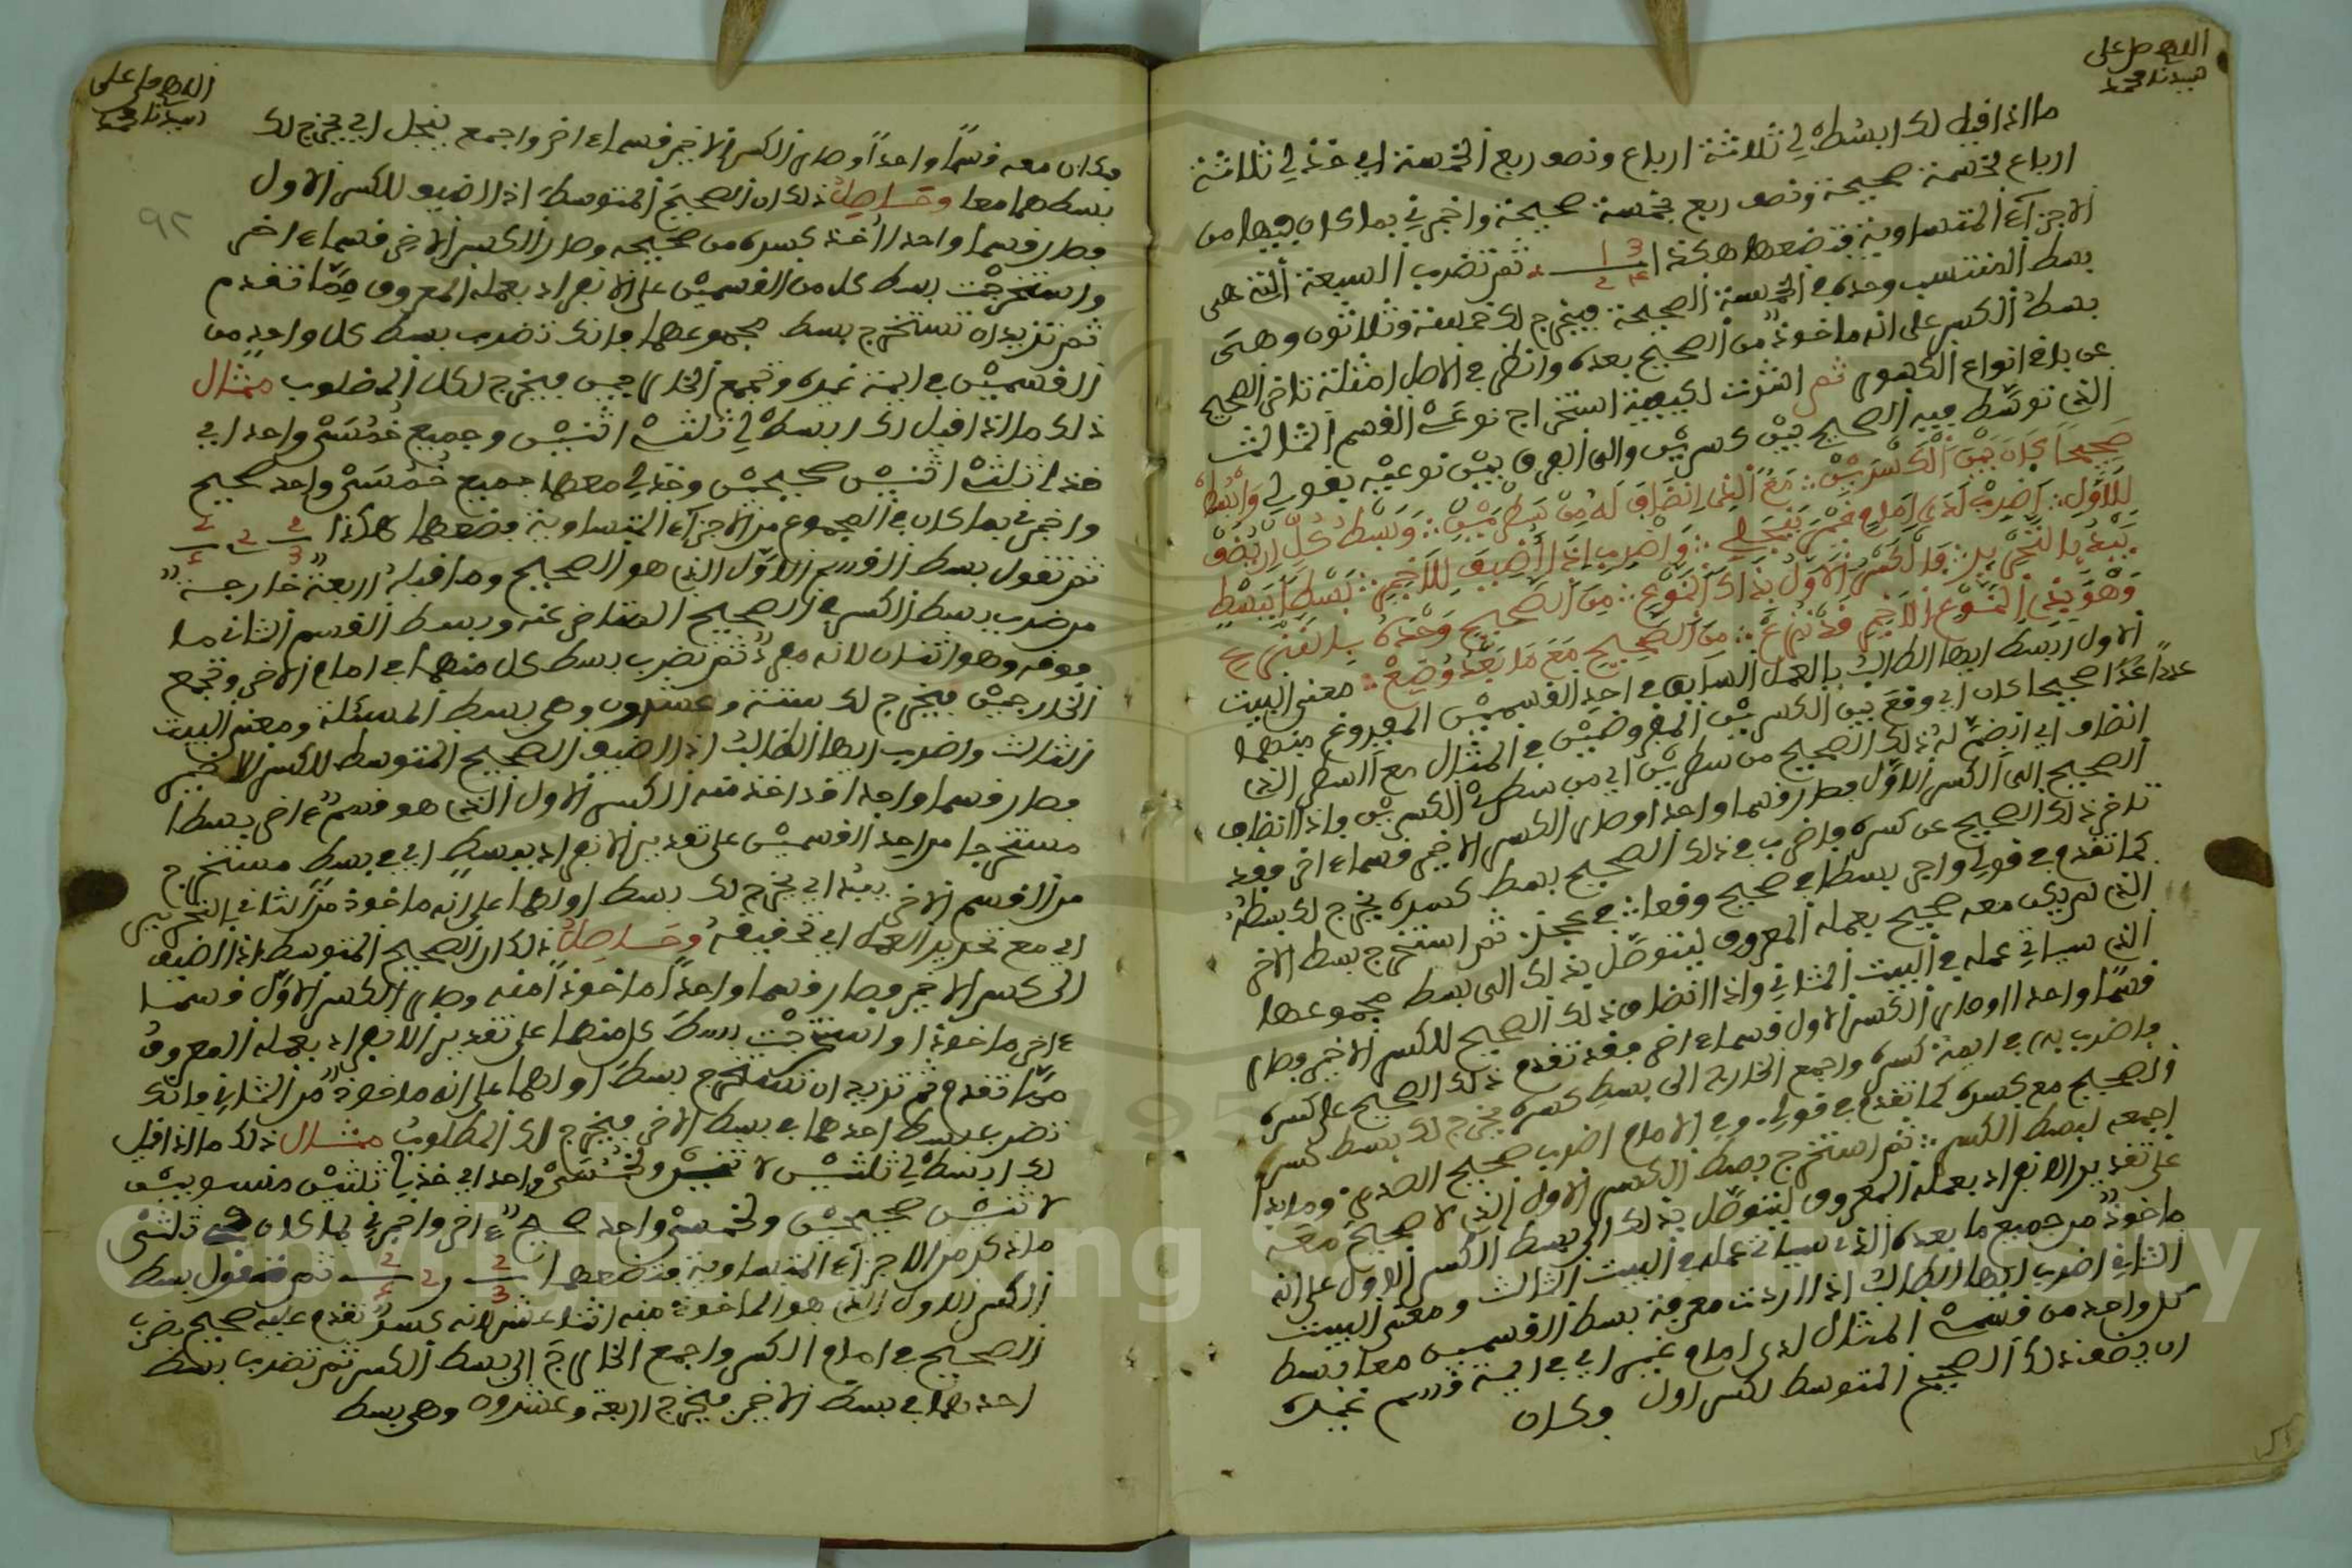 اللهم صل على
سيدنا محمد
ما اذا قيل لك ابسط لي ثلاثة ارباع ونصف ربع الخمسة اي خذ لي ثلاثة
ارباع خمسة صحيحة ونصف ربع خمسة صحيحة واخبرني بما كان فيها من
الاجزاء المتساوية فتضعها هكذا 1 3 2 4 5 ثم تضرب السبعة التي هي
بسط المنتسب وحده في الخمسة الصحيحة فيخرج لك خمسة وثلاثون وهي
بسط الكسر على انه ماخوذ من الصحيح بعده وانظر في الاصل امثلة تاخر الصحيح
عن باقي انواع الكسور ثم اشرت لكيفية استخراج نوعي القسم الثالث
الذي توسط فيه الصحيح بين كسرين والى الفرق بين نوعيه بقولي وابسط
صحيحا كان بين الكسرين مع الذي انضاف له من سطرين وبسط كل
للاول اضرب لدى امام غير ينجلي واضرب اذا اضيف للاخير بسطا ببسط
وهو في النوع الاخير قد نزع من الصحيح مع ما بعد وضع معنى البيت
الاول ابسط ايها الطالب بالعمل السابق في احد القسمين المفروغ منهما
عددا صحيحا كان اي وقع بين الكسرين المفروضين في المثال مع السطر الذي
انضاف اي انضم له ذلك الصحيح من سطرين اي من سطري الكسرين فاذا انضاف
الصحيح الى الكسر الاول فصار قسما واحدا وصار الكسر الاخير قسما ءاخر فقد
تاخر ذلك الصحيح عن كسره فاضرب في ذلك الصحيح بسط كسره يخرج لك بسطه
كما تقدم في قولي واجر بسطا في صحيح وقعا في عجز ثم استخرج بسط الاخر
الذي لم يكن معه صحيح بعمله المعروف لتتوصل بذلك الى بسط مجموعهما
الذي سياتي عمله في البيت الثاني واذا انضاف ذلك الصحيح للكسر الاخير فصار
قسما واحدا وصار الكسر الاول قسما ءاخر فقد تقدم ذلك الصحيح على كسره
فاضرب به في ايمة كسره واجمع الخارج الى بسط كسره يخرج لك بسط كسر
الصحيح مع كسره كما تقدم في قولي وفي الامام اضرب صحيح الصدر وما بدا
اجمعه لبسط الكسر ثم استخرج بسط الكسر الاول الذي لا صحيح معه
على تقدير الانفراد بعمله المعروف لتتوصل بذلك الى بسط الكسر الاول على انه
ماخوذ من جميع ما بعده الذي سياتي عمله في البيت الثالث ومعنى البيت
الثاني اضرب ايها الطالب اذا اردت معرفة بسط القسمين معا بسط
كل واحد من قسمي المثال لدى امام غير اي في ايمة قسم غيره
ان يضف ذلك الصحيح المتوسط لكسر اول وكان
اللهم صل على
سيدنا محمد
٩٢
فكان معه قسما واحدا وصار الكسر الاخير قسما ءاخر واجمع ينجل اي يخرج لك
بسطهما معا وحاصل ذلك ان الصحيح المتوسط اذا اضيف للكسر الاول
فصار قسما واحدا اخذ كسره من صحيحه وصار الكسر الاخر قسما ءاخر
واستخرجت بسط كل من القسمين على الانفراد بعمله المعروف مما تقدم
ثم تريد ان تستخرج بسط مجموعهما فانك تضرب بسط كل واحد من
القسمين في ايمة غيره وتجمع الخارجين فيخرج لك المطلوب مثال
ذلك ما اذا قيل لك ابسط لي ثلثي اثنين وجميع خمسي واحد اي
خذ لي ثلثي اثنين صحيحين وخذ لي معها جميع خمسي واحد صحيح
واخبرني بما كان في المجموع من الاجزاء المتساوية فضعها هكذا 2 3 2 2 5
ثم تقول بسط القسم الاول الذي هو الصحيح وما قبله اربعة خارجة
من ضرب بسط الكسر في الصحيح المتاخر عنه وبسط القسم الثاني ما
فوقه وهو اثنان لانه مفرد ثم تضرب بسط كل منهما في امام الاخر وتجمع
الخارجين فيخرج لك ستة وعشرون وهي بسط المسئلة ومعنى البيت
الثالث واضرب ايها الطالب اذا اضيف الصحيح المتوسط للكسر الاخير
فصار قسما واحدا قد اخذ منه الكسر الاول الذي هو قسم ءاخر بسطا
مستخرجا من احد القسمين على تقدير الانفراد ببسط اي في بسط مستخرج
من القسم الاخر يبد اي يخرج لك بسط اولهما على انه ماخوذ من الثاني بالتحرير
اي مع تحرير العمل اي تحقيقه وحاصل ذلك ان الصحيح المتوسط اذا اضيف
الى كسر الاخير فصار قسما واحدا ماخوذا منه وصار الكسر الاول قسما
ءاخر ماخوذا واستخرجت بسط كل منهما على تقدير الانفراد بعمله المعروف
مما تقدم ثم تريد ان تستخرج بسط اولهما على انه ماخوذ من الثاني فانك
تضرب بسط احدهما في بسط الاخر فيخرج لك المطلوب مثال ذلك ما اذا قيل
لك ابسط لي ثلثين لاثنين وخمسي واحد اي خذ لي ثلثين منسوبين
لاثنين صحيحين وخمسي واحد صحيح ءاخر واخبرني بما كان في ثلثي
ما ذكر من الاجزاء المتساوية فتضعها 2 3 و 2 2 5 ثم تقول بسط
الكسر الاول الذي هو الماخوذ منه اثنا عشر لانه كسر تقدم عليه صحيح بضرب
الصحيح في امام الكسر واجمع الخارج الى بسط الكسر ثم تضرب بسط
احدهما في بسط الاخير فيخرج اربعة وعشرون وهي بسط
Copyright © King Saud University